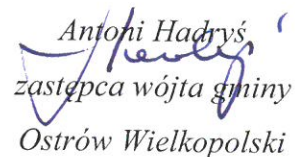 Antoni Hadryś
zastępca wójta gminy
Ostrów Wielkopolski